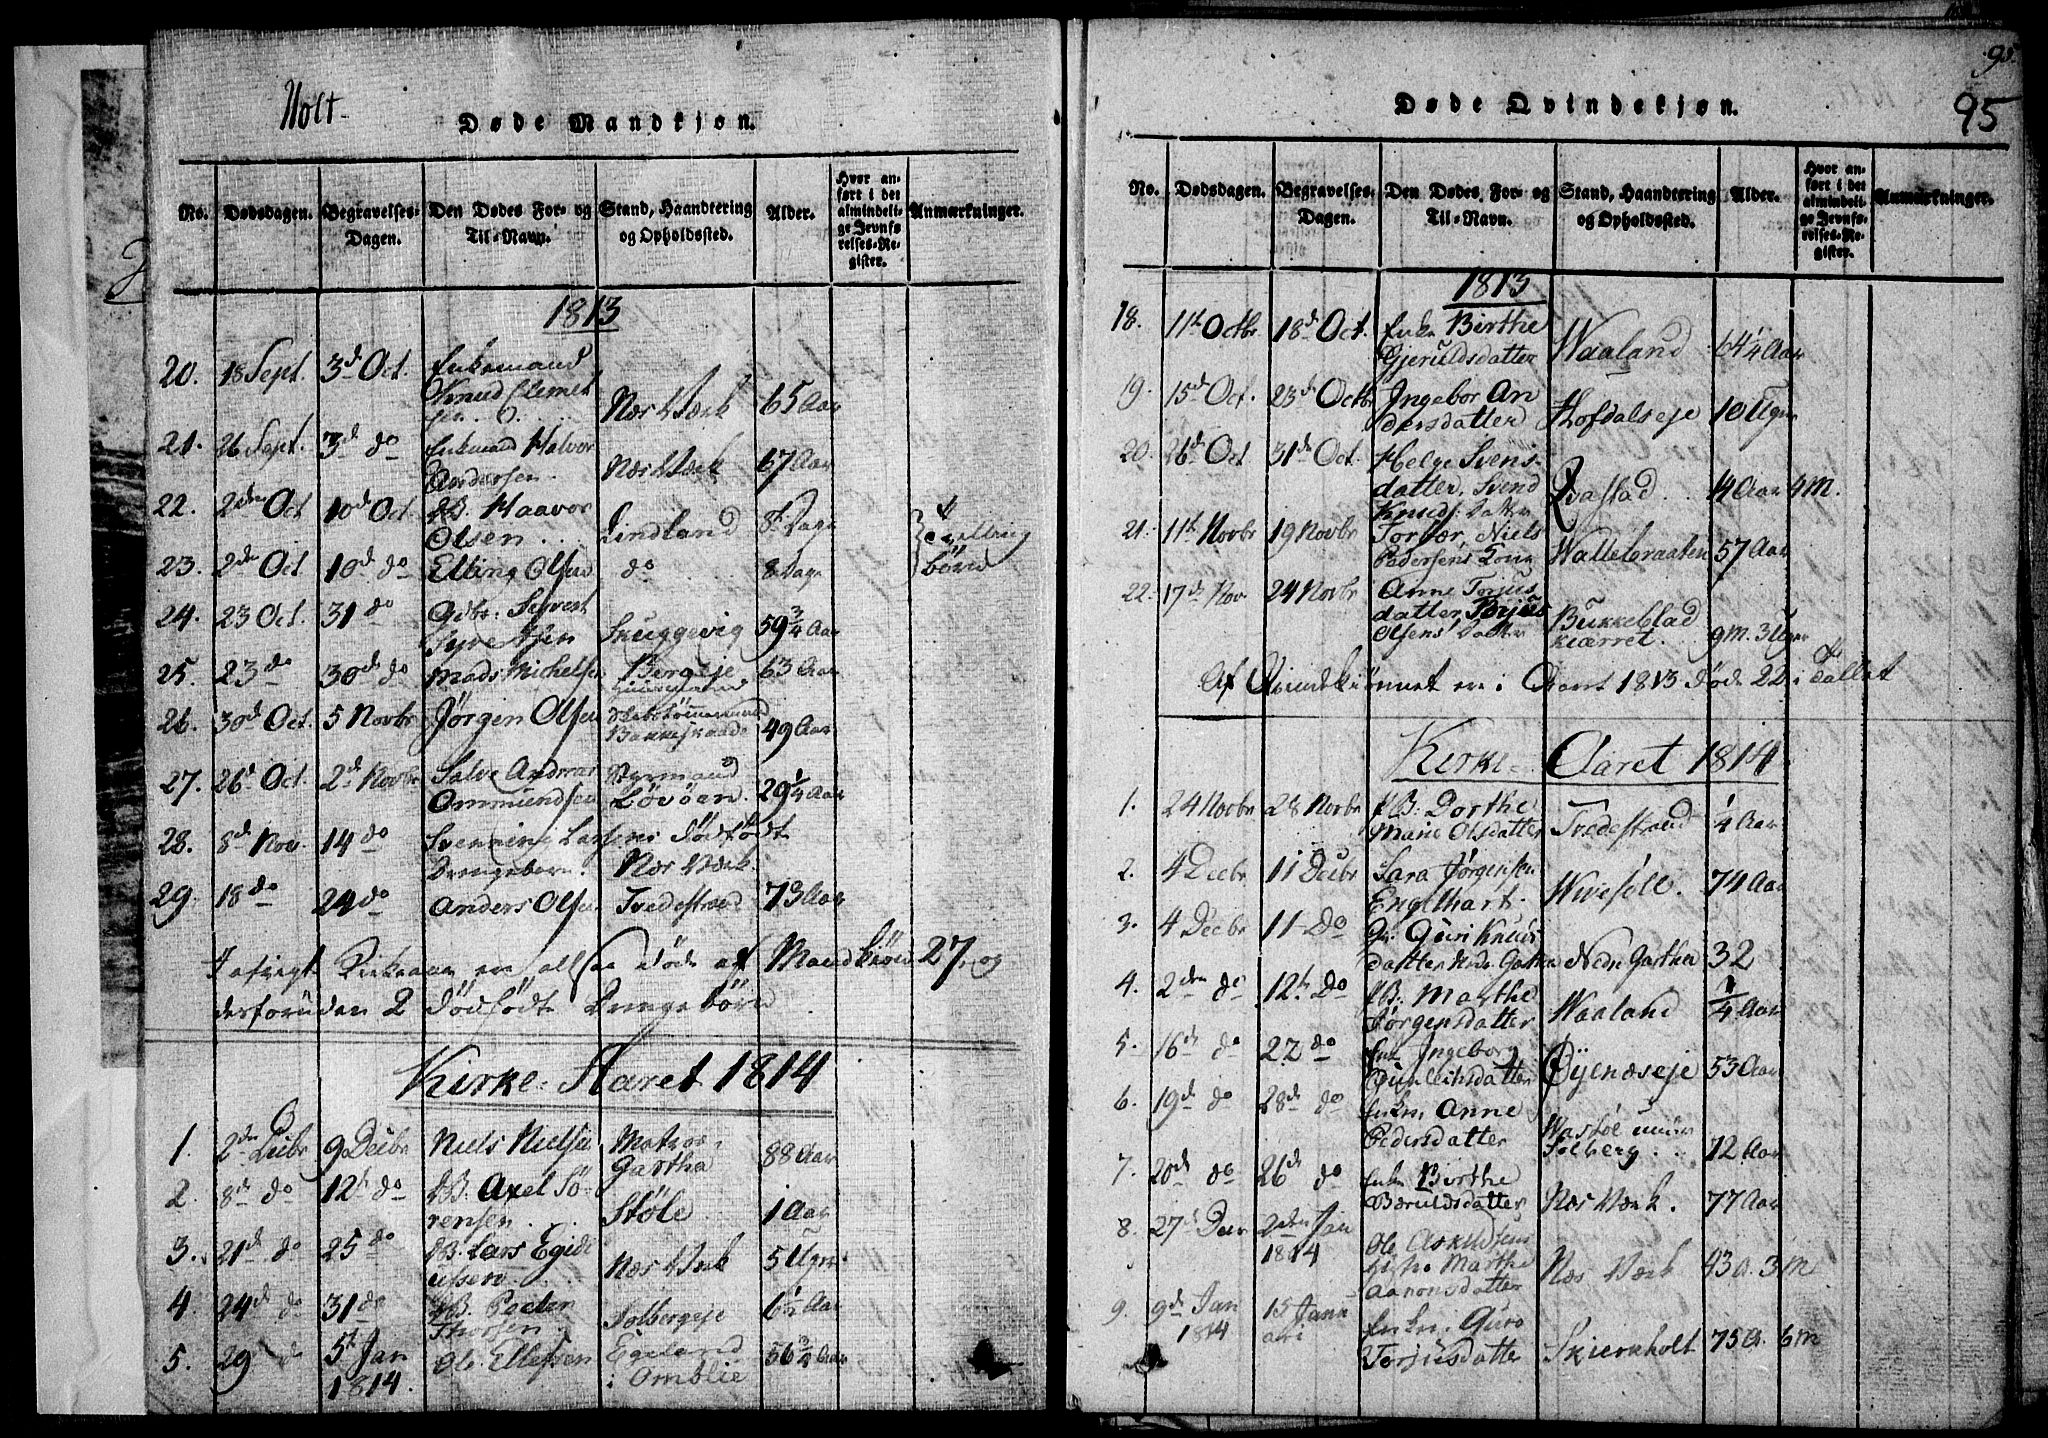 Holt
Døde Mandkjøn.
No. Dødsdagen. Begravelses-Dagen. Den Dødes For- og Til-Navn. Stand, Haandtering og Opholdssted. Alder. Hvor anført i det almindelige Jevnførelses-Register. Anmærkninger.
1813
20. 18 Sept. 3d Oct. Enkemand
Knud Clemet
sen Næs Værk 65 Aar
21. 26 Sept. 3d do Enkemand Halvor
Andersen Næs Værk 67 Aar
22. 2den Oct 10d Oct Haavor
Olsen Lindland 8 Dage
23. 2de Oct 10d do Elling Olsen do 8 Dage børn
24. 23 Oct. 31 do Gdbr. Syvert
Syvertsen Skuggevig 59 3/4 Aar
25. 23 do 30d do Mads Michelsen Bergeje 63 Aar
26. 30d Oct. 5 Novbr Jørgen Olsen 49 Aar
27. 26d Oct 2d Novbr Salve Andreas
Ommundsen Løvöen 29 1/4 Aar
28. 8d Nov. 14 do Svenning Larsens dödfödte
Drengebarn. Næs Værk.
29. 18 do 24 do Anders Olsen Tvedestrand 73 Aar
I afvigte Kirkeaar er altsaa döde af Mandkiön 27, og
desforuden 2 dödfödte Drengebörn
Kirke-Aaret 1814
1. 2den Decbr 9 Decbr Niels Nielsen
Gartha 88 Aar
2. 8d do 12t do Axel Sö-
rensen Stöle 1 Aar
3. 21d do 25 do Lars Egidi
usen Næs Værk 5 Uger
4. 24d do 31 do Peder
Thorsen Solbergeje 6 1/2 Aar
5. 29 do 5t Jan
1814. Ole Ellefsen Egeland
i Omblie 56 3/4 Aar
95
95
Døde Qvindekjøn.
No. Dødsdagen. Begravelses-Dagen. Den Dødes For- og Til-Navn. Stand, Haandtering og Opholdssted. Alder. Hvor anført i det almindelige Jevnførelses-Register. Anmærkninger.
1813
18. 11t Octbr 18d Oct. Enke Birthe
Gjeruldsdatter Waaland 64 1/4 Aar
19. 15d Oct. 23d Octbr Ingebor An
dersdatter Hofdalseje 10 Uger
20. 26d Oct 31d Oct. Helge Svens-
datter, Svend
Knuds: Datter Qvastad 4 Aar 4 M.
21. 11t Novbr 19 Novbr Torbor, Niels
Pedersens Kone Valle braaten 57 Aar
22. 17d Nov 24 Novbr Anne Torjus
datter, Torjus
Olsens Datter Bukkeblad
kiærret. 9 m. 3 Uger
Af Qvindekiönnet er i Aaret 1813 döde 22 i Tallet
Kirke-Aaret 1814
1. 24 Novbr 28 Novbr Dorthe
Marie Olsdatter Tvedestrand 1/4 Aar
2. 4 Decbr 11 Decbr Sara Jørgensen
Englhart. 74 Aar
3. 4 Decbr 11 Do Guri Knuds
datter Nedr. Gartha Nedr Gartha 32
4. 2den do 12t Do Marthe
Jørgensdatter Waaland 1/4 Aar
5. 16d do 22 do Enke Ingeborg
Gunleiksdatter Öyenæseje 53 Aar
6. 19d do 28d do Enke Anne
Pedersdatter
Solberg 72 Aar
7. 20d do 26d do Enke Birthe
Næs Værk. 77 Aar
8. 27d Decbr 2den Jan
1814 Ole
Marthe
Aanonsdatter Næs Værk 43 a. 3 M
9. 9d Jan
1814 15 Janu
ari Enke Guro
Torjusdatter Skiernholt 75 A. 6 m